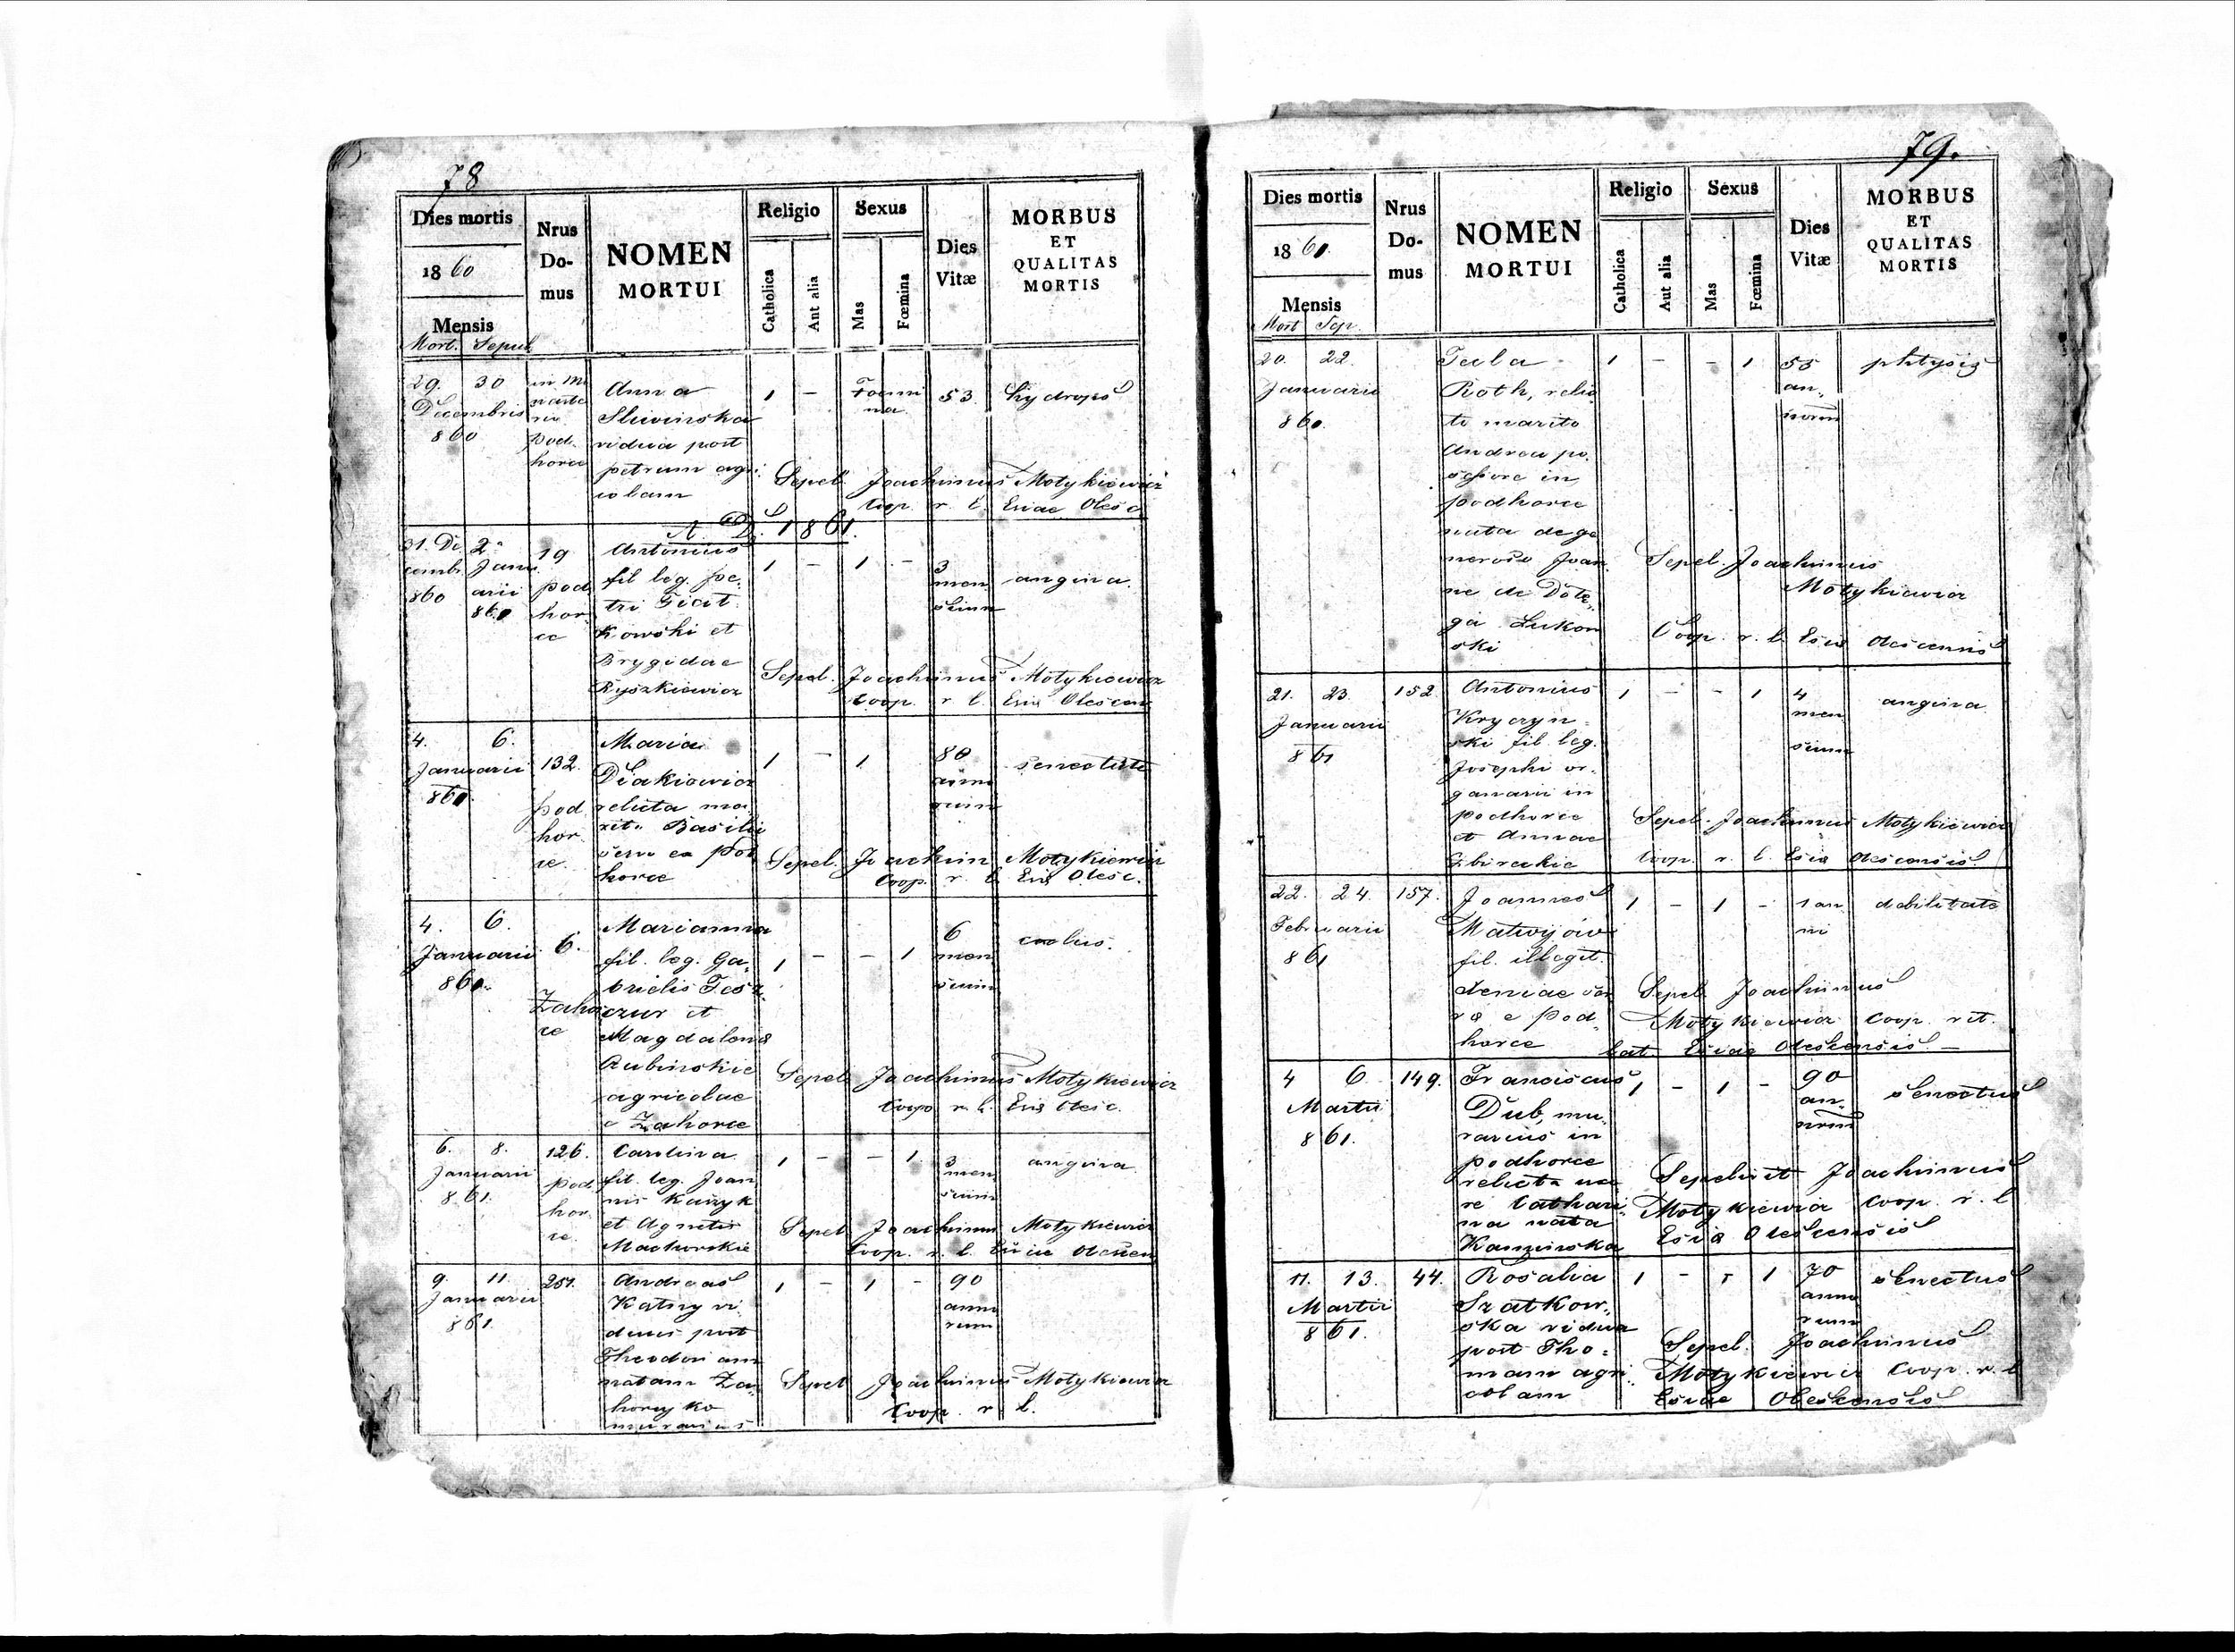 78
Dies mortis
1860
Mensis
Mort. Sepul.
Nrus Do- mus
NOMEN MORTUI
Religio
Catholica
Ant alia
Sexus
Mas
Fœmina
Dies Vitæ
MORBUS ET QUALITAS MORTIS
29. 30
Decembris
860
pod
horce
Anna
Sliwinska
vidua post
petrum agri
colam
1 - Foemi
na
53
hydrops
Sepel. Joachimus Motykiewicz
Coop. r. l. Eccae Olesc
A. D. 1861.
31. De 2
cembr. Janu
860 arii
861
19
pod
hor
ce
Antonius
fil leg. Pe
tri Giat
kowski et
Brygidae
Ryszkiewicz
1 - 1 -
3
men
sium
angina
Sepel. Joachimus Motykiewicz
Coop. r. l.
4. 6.
Januarii
861.
132.
pod
hor
ce.
Maria
Diakiewicz
relicta ma
rito Basilii
horce
1 - 1
80
anno
rum
senectute
Sepel. Joachim Motykiewicz
Coop. r. l. Olesc.
4. 6.
Januarii
861.
6.
Zaho
ce
Marianna
fil. leg. Ga
brielis Tesz
czur et
Magdalena
Rubinskie
agricolae
e Zahorce
1 - - 1
6
men
sium
Sepel Joachimus Motykiewicz
Coop r. l. Olesc.
6. 8.
Januarii
861.
126.
pod
hor
ce.
Carolina
fil. leg. Joan
nis
et Agnetis
1 - - 1.
3
men
sium
angina
Sepel Joachimus Motykiewicz
Coop. r. l.
9. 11.
Januarii
861.
251.
Andreas
Katny vi
duus post
natam Za
murarius
1 - 1 -
90
anno
rum
Sepel Joachimus Motykiewicz
Coop. r. l.
79.
Dies mortis
1861.
Mensis
Mort Sep.
Nrus Do- mus
NOMEN MORTUI
Religio
Catholica
Aut alia
Sexus
Mas
Fœmina
Dies Vitæ
MORBUS ET QUALITAS MORTIS
20. 22.
Januarii
861.
Roth, relic
to marito
Andrea po
ssore in
podhorce
nata de ge
neroso Joan
ne de Dole
ga Lukow
ski
1 - - 1
an
norum
phtysis
Sepel. Joachimus
Motykiewicz
Coop. r. l. Olescensis
21. 23.
Januarii
861
152.
Antonius
Kryczyn
ski fil leg.
Josephi or
ganarii in
podhorce
et Annae
1 - - 1
4
men
sium
angina
Sepel. Joachimus Motykiewicz
Coop. r. l. Olescensis
22. 24.
Februarii
861
157.
Joannes
Matwyjow
fil. illegit.
e Pod
horce
1 - 1 -
1 an
ni
debilitate
Sepel Joachimus
Motykiewicz Coop. rit.
lat. Olescensis. —
4 6
Martii
861.
149.
Franciscus
Dub, mu
rarius in
podhorce
relicta uxo
re Cathari
na nata
Kaminska
1 - 1 -
90
an
norum
senectus
Sepelivit Joachimus
Motykiewicz Coop. r. l
Olescensis
11. 13.
Martii
861.
44.
Rosalia
Szatkow
ska vidua
post Tho
mam agri
colam
1 - - 1
70
anno
rum
senectus
Sepel. Joachimus
Motykiewicz Coop. r. l
Olescensis